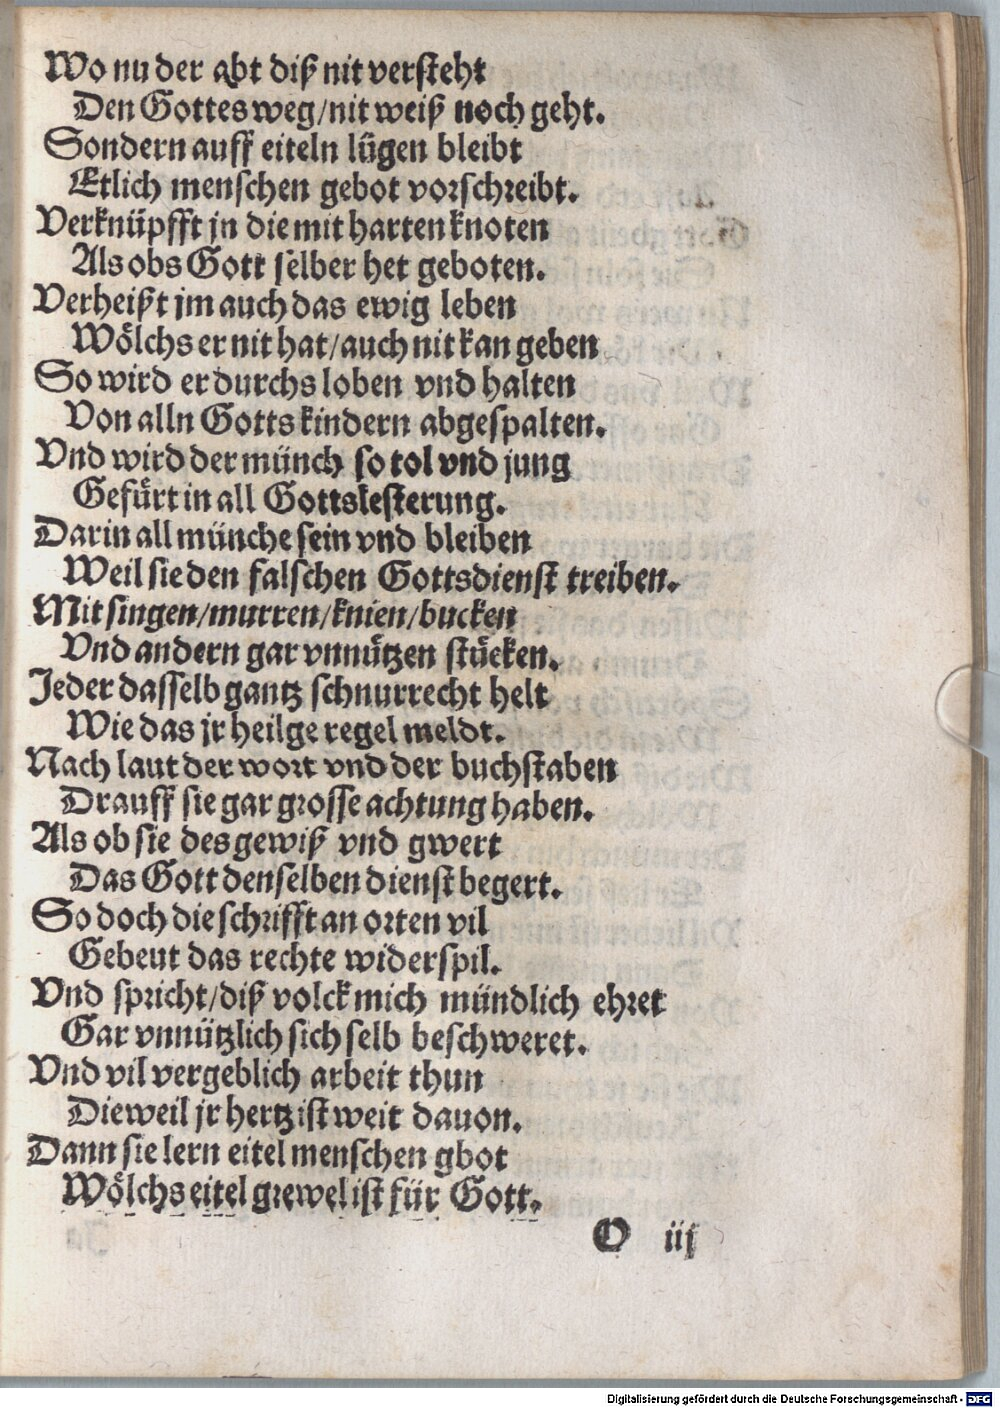 Wo nu der abt diß nit versteht
Den Gottes weg/nit weiß noch geht.
Sondern auff eiteln lügen bleibt
Etlich menschen gebot vorschreibt.
Verknüpfft jn die mit harten knoten
Als obs Gott selber het geboten.
Verheißt jm auch das ewig leben
Wölchs er nit hat/auch nit kan geben
So wird er durchs loben vnd halten
Von alln Gotts kindern abgespalten.
Vnd wird der münch so tol vnd jung
Gefürt in all Gottslesterung.
Darin all münche sein vnd bleiben
Weil sie den falschen Gottsdienst treiben.
Mit singen/murren/knien/bucken
Vnd andern gar vnnützen stücken.
Jeder dasselb gantz schnurrecht helt
Wie das jr heilge regel meldt.
Nach laut der wort vnd der buchstaben
Drauff sie gar grosse achtung haben.
Als ob sie des gewiß vnd gwert
Das Gott denselben dienst begert.
So doch die schrifft an orten vil
Gebeut das rechte widerspil.
Vnd spricht/diß volck mich mündlich ehret
Gar vnnützlich sich selb beschweret.
Vnd vil vergeblich arbeit thun
Dieweil jr hertz ist weit dauon.
Dann sie lern eitel menschen gbot
Wölchs eitel grewel ist für Gott.
O iij
Digitalisierung gefördert durch die Deutsche Forschungsgemeinschaft - DFG